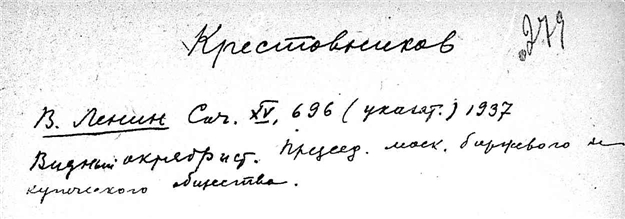 279
Крестовников
В. Ленин Соч. XV, 696 (указат.) 1937
Видный октябрист. Председ. моск. биржевого и
купеческого общества.